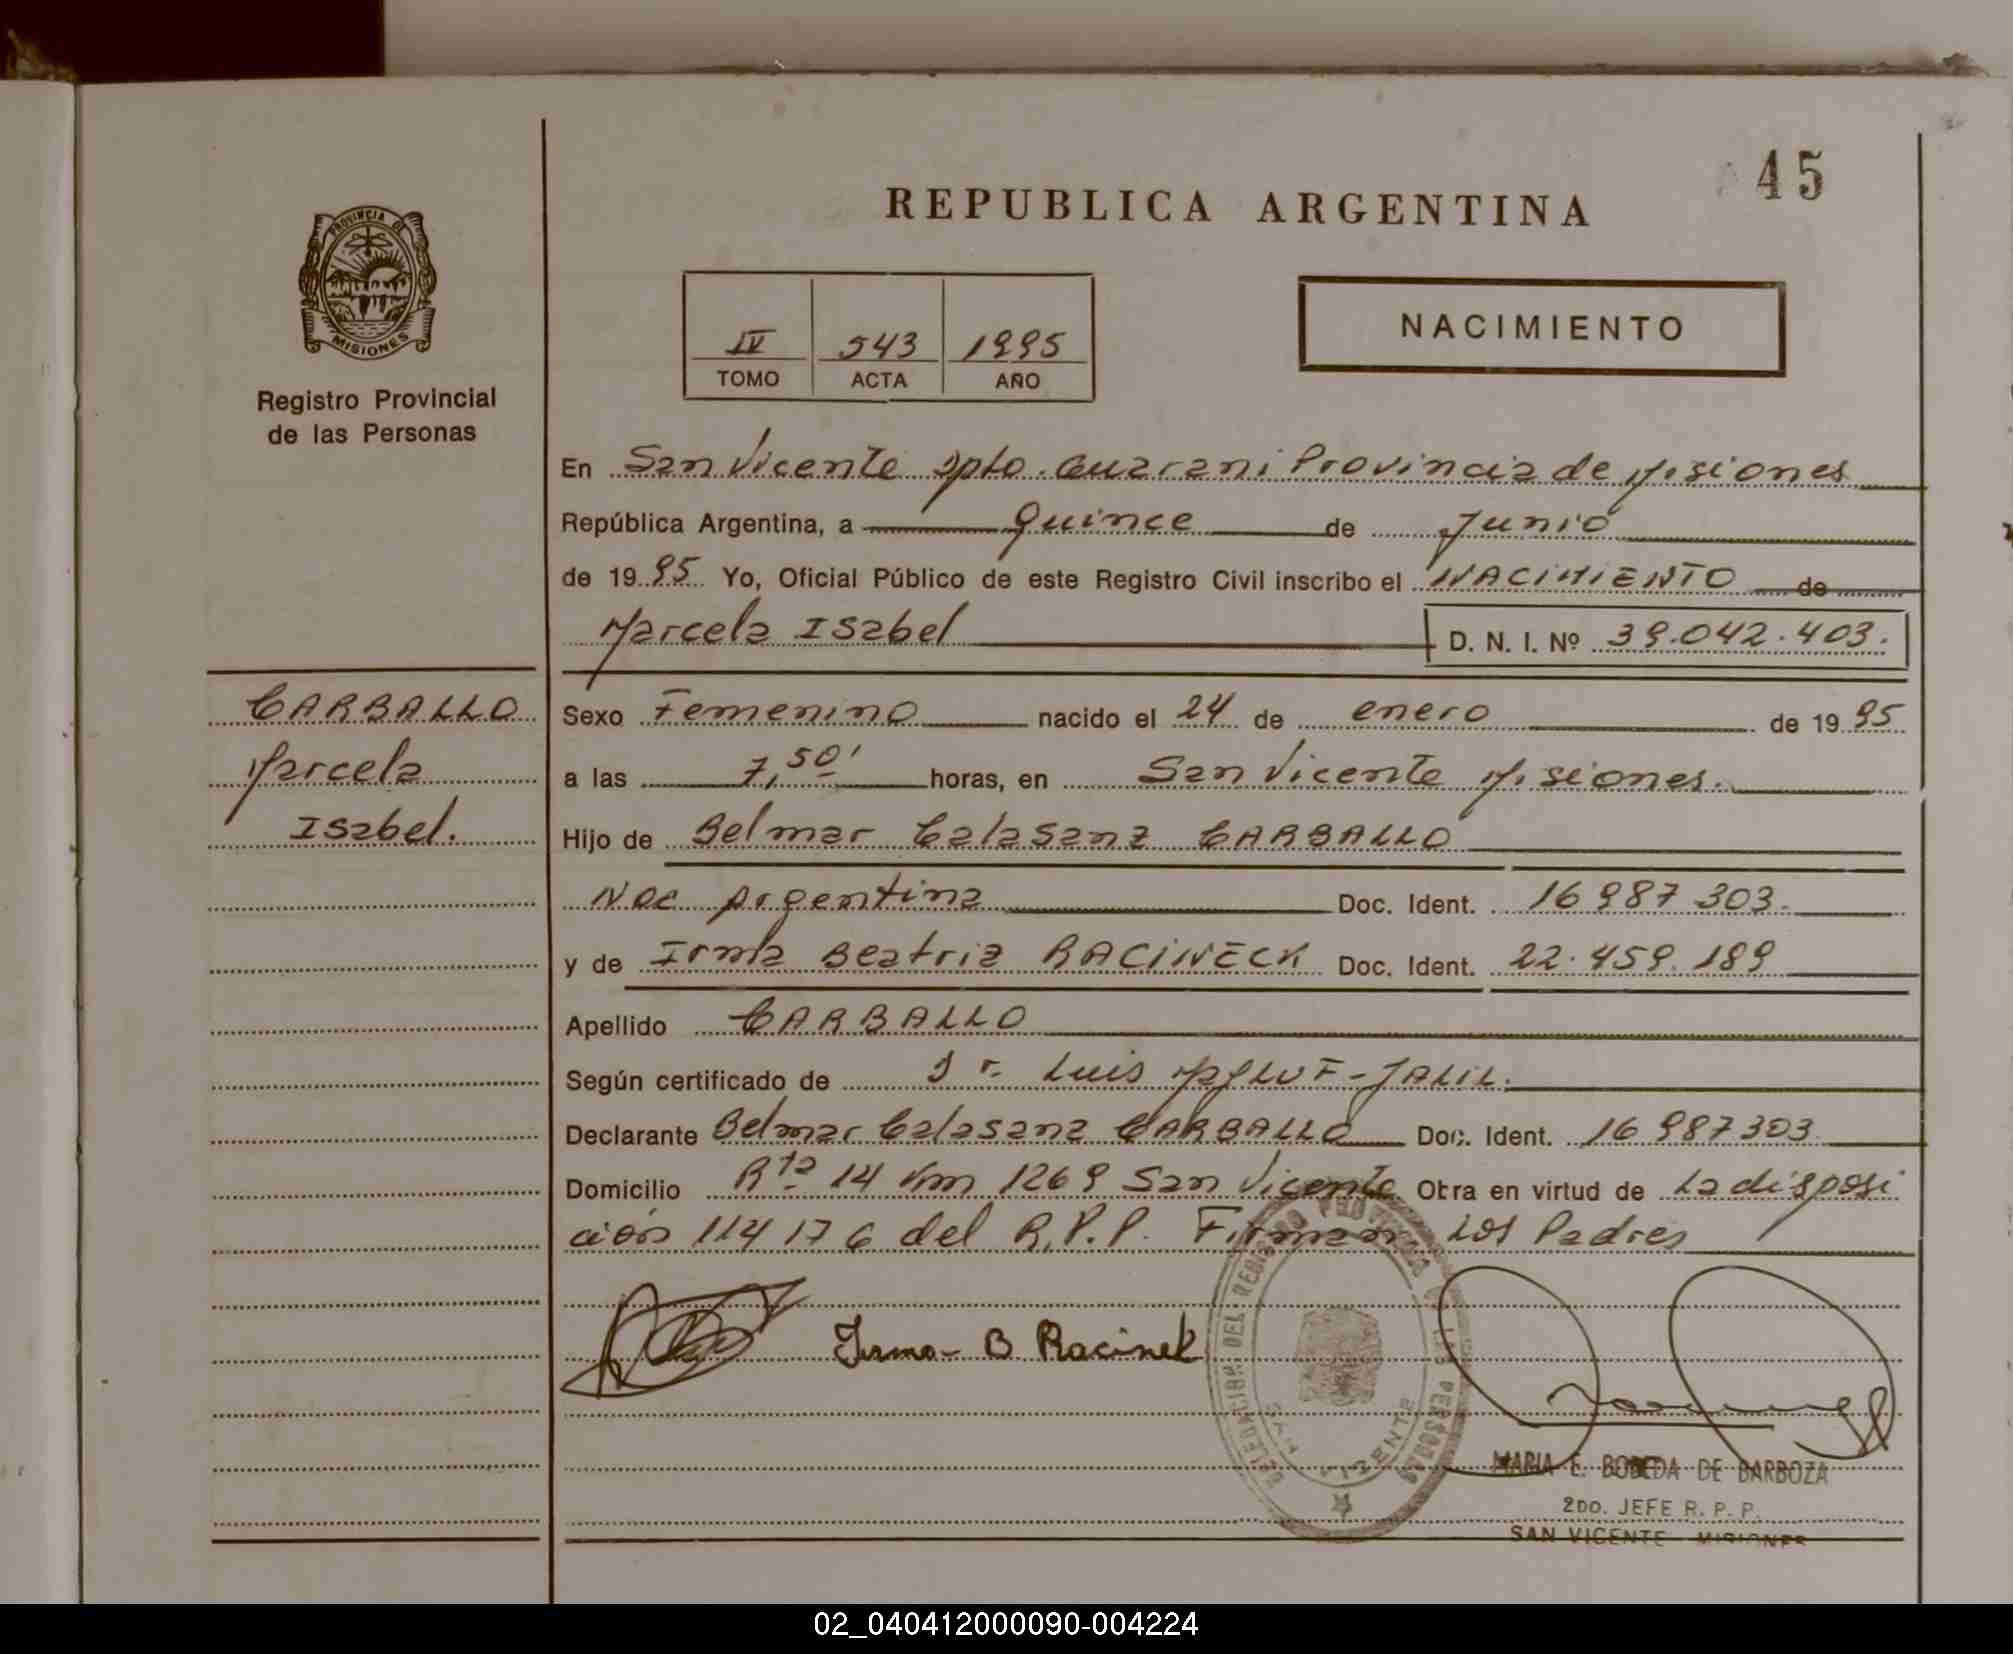 45
REPUBLICA ARGENTINA
PROVINCIA DE
MISIONES
Registro Provincial
de las Personas
IV 543 1995
TOMO ACTA AÑO
NACIMIENTO
En San Vicente Dpto. Guarani Provincia de Misiones
República Argentina, a Quince de Junio
de 1995 Yo, Oficial Público de este Registro Civil inscribo el NACIMIENTO de
Marcela Isabel D. N. I. Nº 39.042.403.
CARBALLO
Marcela
Isabel.
Sexo Femenino nacido el 24 de enero de 1995
a las 7,50' horas, en San Vicente Misiones.
Hijo de Belmar Calasanz CARBALLO
Nac Argentina Doc. Ident. 16 987 303.
y de Irma Beatriz RACINECK Doc. Ident. 22.459.189
Apellido CARBALLO
Según certificado de Dr. Luis JALIL.
Declarante Belmar Calasanz CARBALLO Doc. Ident. 16 987303
Domicilio Rta 14 Km 1269 San Vicente Otra en virtud de La disposi
ción 114 17 6 del R.P.P. Firman Los Padres
Irma B Racinek
DELEGACION DEL REGISTRO PROVINCIAL DE LAS PERSONAS
SAN VICENTE
MARIA E. BOBEDA DE BARBOZA
2DO. JEFE R. P. P.
SAN VICENTE - MISIONES
02_040412000090-004224